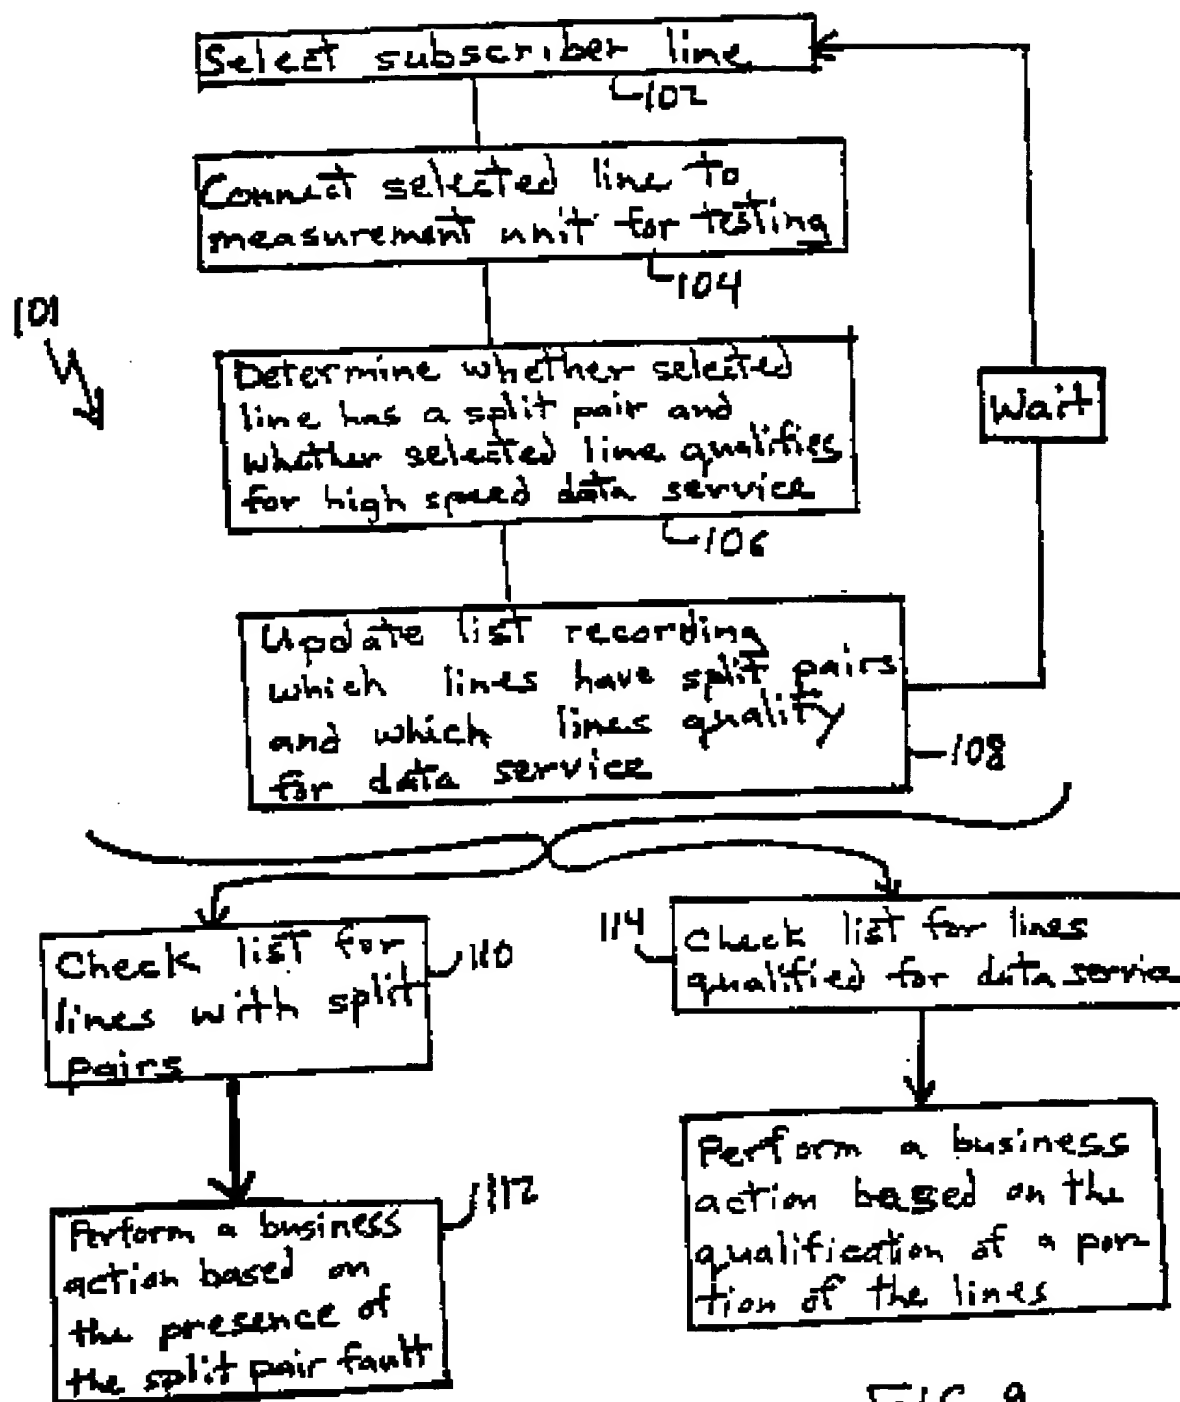 Select subscriber line
102
Connect selected line to
measurement unit for testing
104
101
Determine whether selected
line has a split pair and
whether selected line qualifies
for high speed data service
106
Wait
Update list recording
which lines have split pairs
and which lines qualify
for data service
108
Check list for
lines with split
pairs
110
114
Check list for lines
qualified for data service
Perform a business
action based on
the presence of
the split pair fault
112
Perform a business
action based on the
qualification of a por-
tion of the lines
FIG. 9